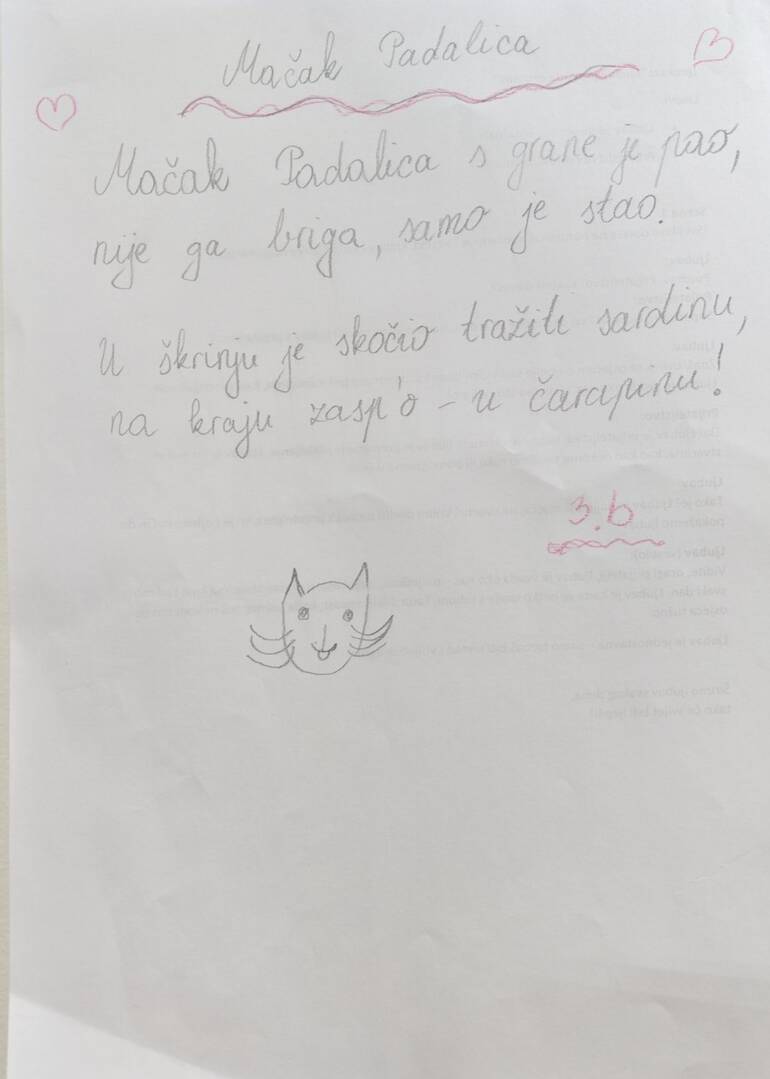 Mačak Padalica
Mačak Padalica s grane je pao,
nije ga briga, samo je stao.
U škrinju je skočio tražiti sardinu,
na kraju zasp'o - u čarapinu!
3.b